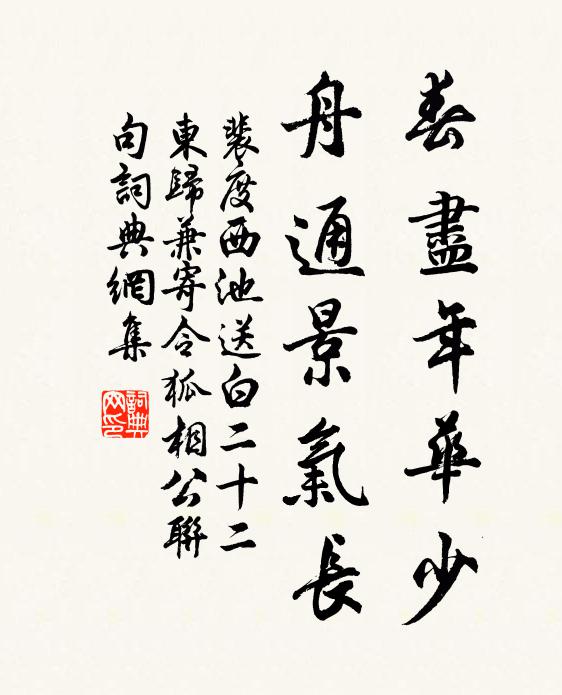 春盡年華少
舟通景氣長
裴度西池送白二十二
東歸兼寄令狐相公聯
句詞典網集
詞典
网印